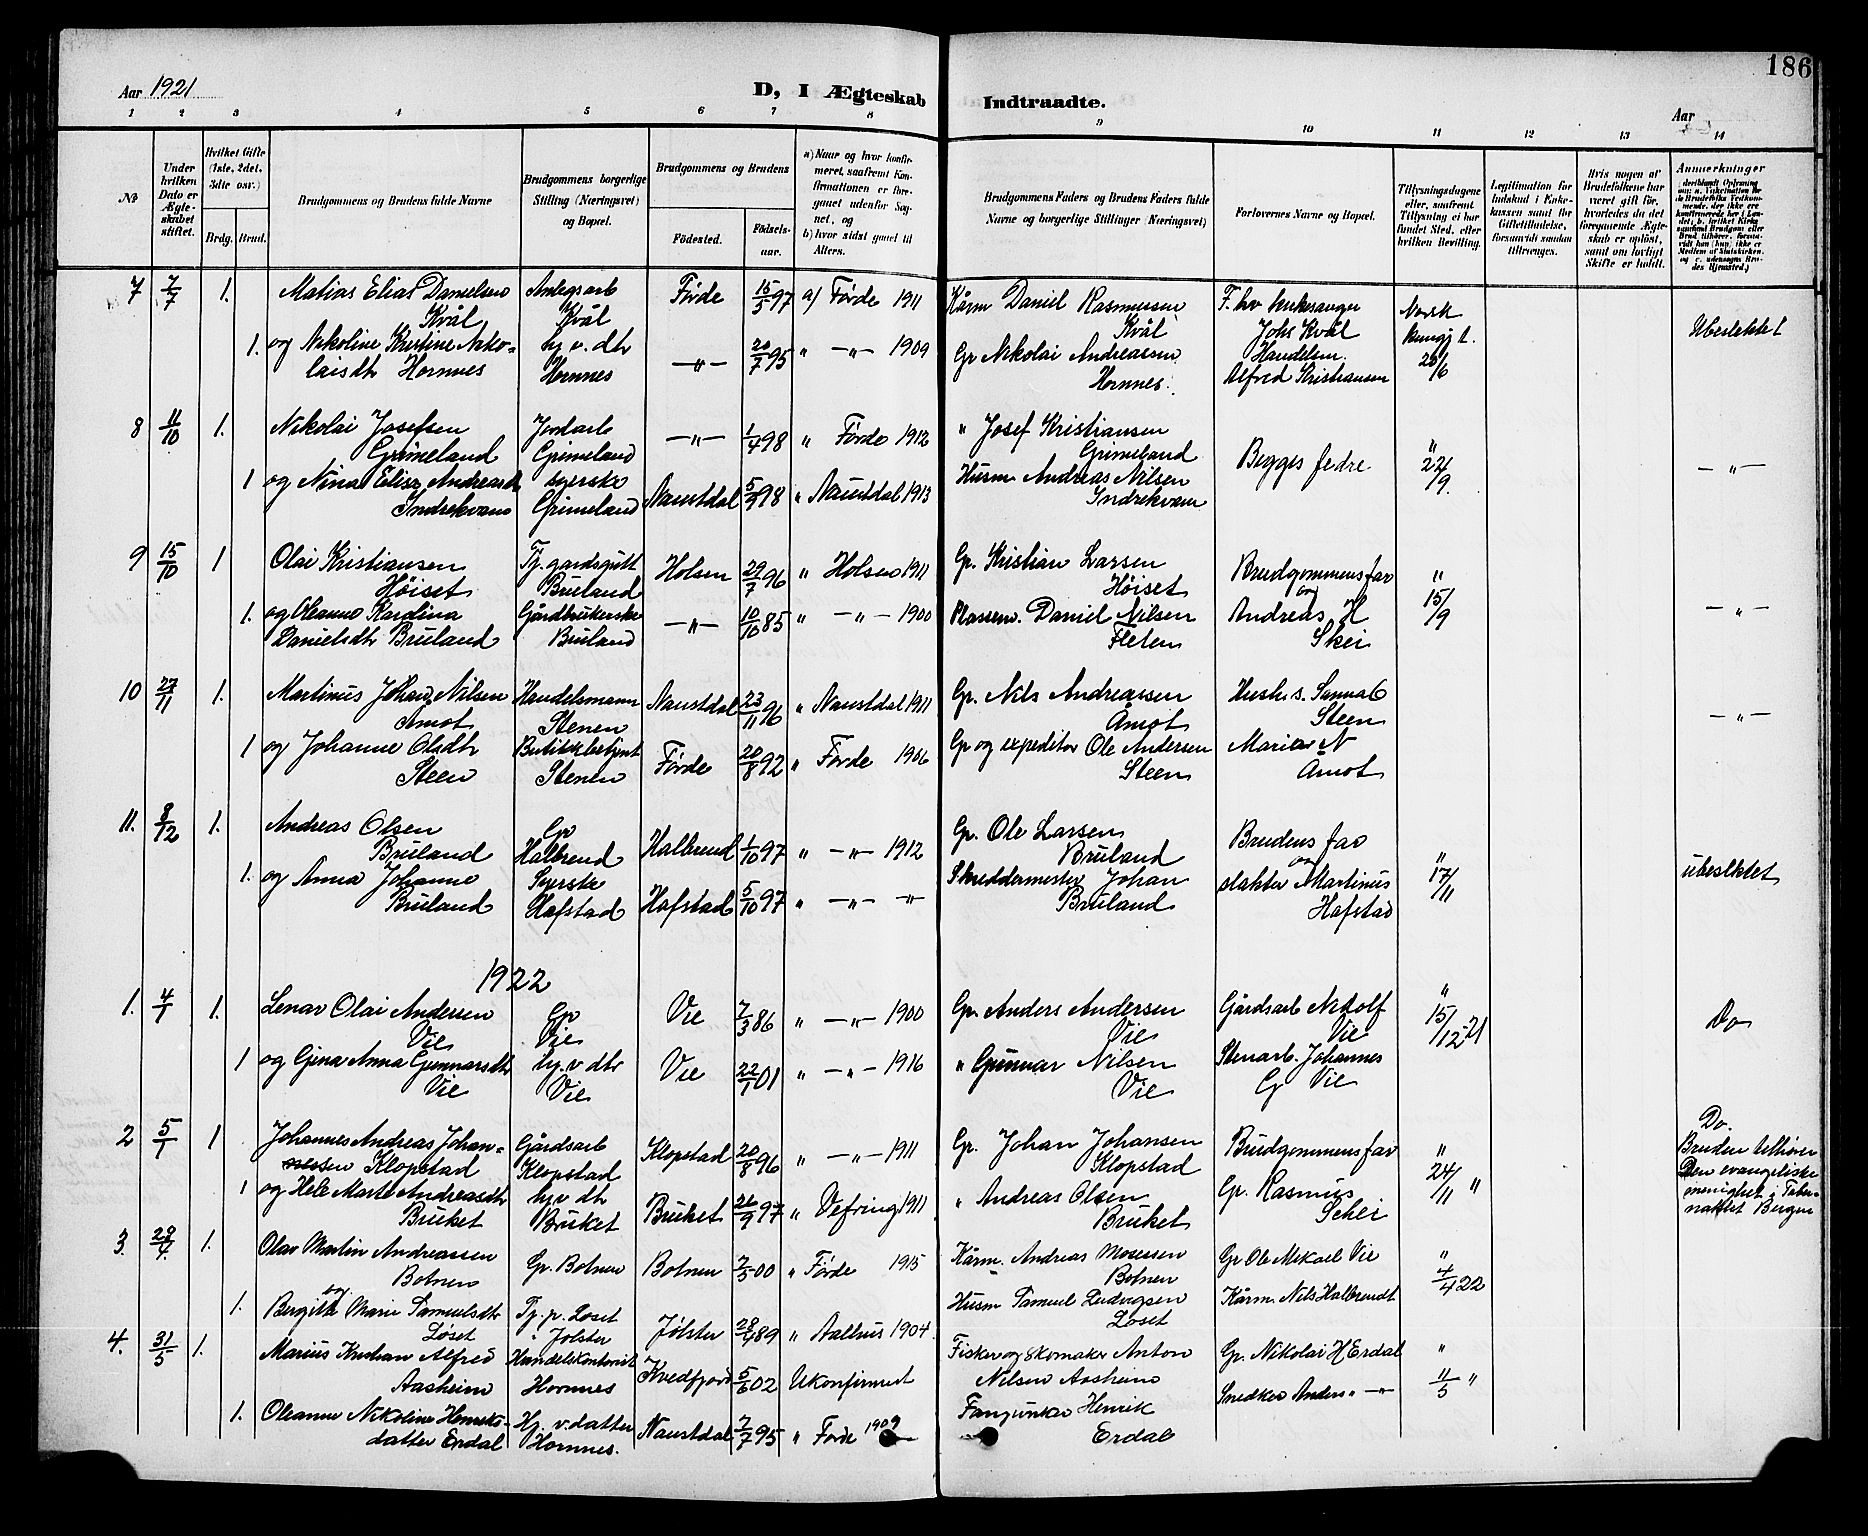 186
Aar 1921
D, I Ægteskab Indtraadte.
Aar
1 2 3 4 5 6 7 8 9 10 11 12 13 14
№
Under hvilken Dato er Ægteskabet stiftet.
Hvilket Gifte (1ste, 2det, 3die osv.)
Brdg. Brud.
Brudgommens og Brudens fulde Navne
Brudgommens borgerlige Stilling (Næringsvei) og Bopæl.
Brudgommens og Brudens
Födested.
Födselsaar.
a) Naar og hvor konfirmeret, saafremt Konfirmationen er foregaaet udenfor Sognet, og
b) hvor sidst gaaet til Alters.
Brudgommens Faders og Brudens Faders fulde Navne og borgerlige Stillinger (Næringsvei)
Forlovernes Navne og Bopæl.
Tillysningsdagene eller, saafremt Tillysning ei har fundet Sted, efter hvilken Bevilling.
Legitimation for Indskud i Enkekassen samt for Giftetilladelse, forsaavidt saadan tiltrænges.
Hvis nogen af Brudefolkene har været gift før, hvorledes da det foregaaende Ægteskab er opløst, samt om lovligt Skifte er holdt.
Anmærkninger
7 7/7 1. Matias Elias Danielsen Anlegsarb Førde 15/5 97 a) Førde 1911 Kårm Daniel Rasmussen F. hv kirkesanger Norsk
Kvål Kvål Kvål Johs Kvål kungj t. Ubeslektet
1. og Nikoline Kristine Niko- hj v. dtr -"- 20/7 95 " -"- 1909 Gr Nikolai Andreassen Handelsm. 28/6
laisdtr Hornnes Hornnes Hornnes. Alfred Kristiansen
8 11/10 1. Nikolai Josefsen Jordarb -"- 1/4 98 " Førde 1912 " Josef Kristiansen "
Grimeland Grimeland Grimeland Begges fedre 24/9. -"-
1 og Nina Elise Andreasdtr syerske Naustdal 5/9 98 " Naustdal 1913 Husm Andreas Nilsen
Indrekvam Grimeland Indrekvam
9 15/10 1 Olai Kristiansen Tj. gardsgutt Holsen 29/7 96 " Holsen 1911 Gr. Kristian Larsen Brudgommens far "
Høiset Bruland Høiset og 15/9
1. og Oleanne Karolina Gårdbrukerske -"- 10/10 85 " -"- 1900 Plassem. Daniel Nilsen Andreas H -"-
Danielsdtr Bruland Bruland Fleten Skei
10 27/11 1. Martinus Johan Nilsen Handelsmann Naustdal 23/11 96 " Naustdal 1911 Gr. Nils Andreassen Hush s. Sanna C
Åmot Stenen Åmot Steen -"-
1 og Johanne Olsdtr Butikkbetjent Førde 28/8 92 " Førde 1906 Gr og expeditør Ole Andersen Marie N
Steen Stenen Steen Åmot
11. 8/12 1. Andreas Olsen Gr Halbrend 1/10 97 " -"- 1912 Gr. Ole Larsen Brudens far
Bruland Halbrend Bruland og "
1. og Anna Johanne Syerske Hafstad 5/10 97 " -"- -"- Skreddermester Johan slakter Martinus 17/11 ubeslktet
Bruland Hafstad Bruland Hafstad
1922
1. 4/1 1. Lenar Olai Andersen Gr Vie 7/3 86 " -"- 1900 Gr. Anders Andersen Gårdsarb Nidolf "
Vie Vie Vie Vie 15/12-21 Do
1 og Gjena Anna Gunnarsdtr hj. v dtr Vie 22/1 01 " -"- 1916 " Gunnar Nilsen Stenarb. Johannes
Vie Vie Vie G Vie
2 5/1 1 Johannes Andreas Johan- Gårdsarb Klopstad 20/8 96 " -"- 1911 Gr. Johan Johansen Brudgommens far " Do.
nessen Klopstad Klopstad Klopstad 24/11 " Bruden tilhører
1 og Hele Marte Andreasdtr hj v dtr Bruket 26/9 97 " Vefring 1911 " Andreas Olsen Gr. Rasmus Den evangeliske
Bruket Bruket Bruket Schei menighet i Taber-
naklet Bergen
3. 28/4. 1. Olav Martin Andreassen Gr. Botnen Botnen 7/5 00 " Førde 1915 Kårm. Andreas Mosessen Gr Ole Mikael Vie "
Botnen Botnen 4/4 22
og
1. Bergith Marie Samuelsdtr Tj. p. Løset Jølster 28/4 89 " Aalhus 1904. Husm Samuel Ludvigsen Kårm. Nils Halbrendt
Løset i Jølster Løset
4. 31/5 1. Marius Kristian Alfred Handelskontorist Kvedfjord 5/6 02 Ukonfirmert Fisker og skomaker Anton Gr. Nikolai H Erdal "
Aasheim Hornnes Nilsen Aasheim Snedker Anders " -"- 11/5 "
1. Oleanne Nikoline Henriks- Hj. v. datter Naustdal 7/7 95 " Førde 1909 Henrik
datter Erdal Hornnes. Erdal